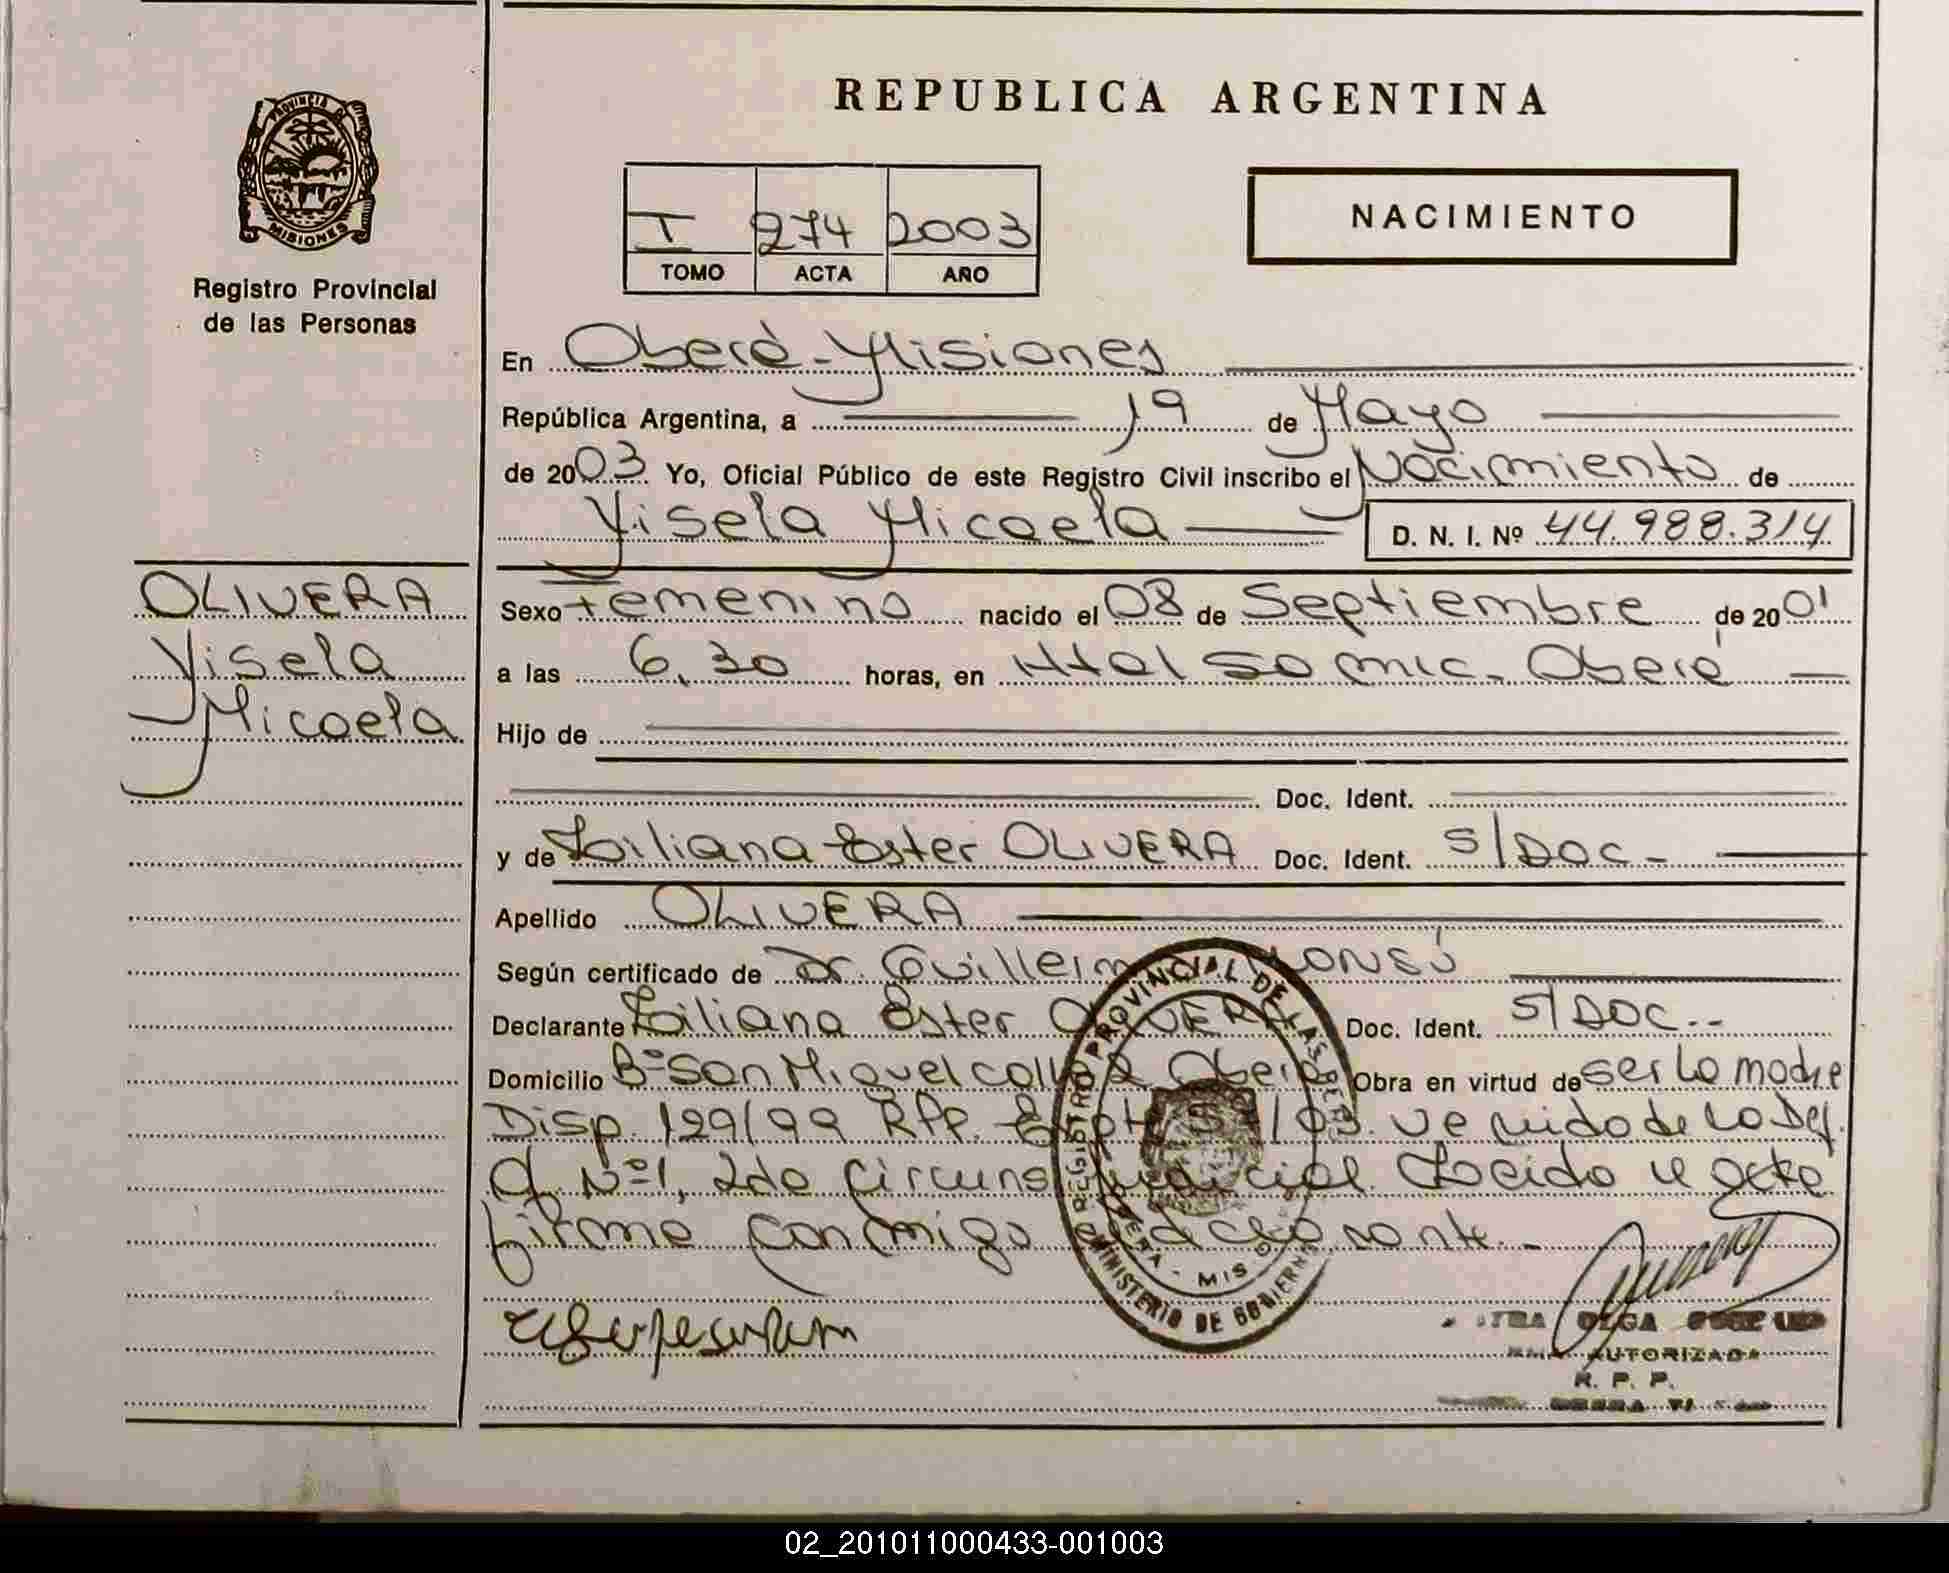 REPUBLICA ARGENTINA
PROVINCIA DE
MISIONES
Registro Provincial
de las Personas
I 274 2003
TOMO ACTA AÑO
NACIMIENTO
En Oberá-Misiones
República Argentina, a 19 de Mayo
de 2003 Yo, Oficial Público de este Registro Civil inscribo el Nacimiento de
Yisela Micaela D. N. I. Nº 44.988.314
OLIVERA
Yisela
Micaela
Sexo Femenino nacido el 08 de Septiembre de 2001
a las 6,30 horas, en Htal Samic. Oberá
Hijo de
Doc. Ident.
y de Liliana Ester OLIVERA Doc. Ident. S/DOC-
Apellido OLIVERA
Según certificado de Dr. Guillermo
Declarante Liliana Ester OLIVERA Doc. Ident. S/DOC--
Domicilio Bº San Miguel calle Oberá Obra en virtud de ser la madre
Disp. 129/99 RPP. Expte /03. venido de la Def.
Of. Nº1, 2da Circuns Judicial. Leido el acta
firma conmigo declarante.-
REGISTRO PROVINCIAL DE LAS PERS
MINISTERIO DE GOBIERNO
OBERA - MIS
OLGA
AUTORIZADA
R. P. P.
02_201011000433-001003